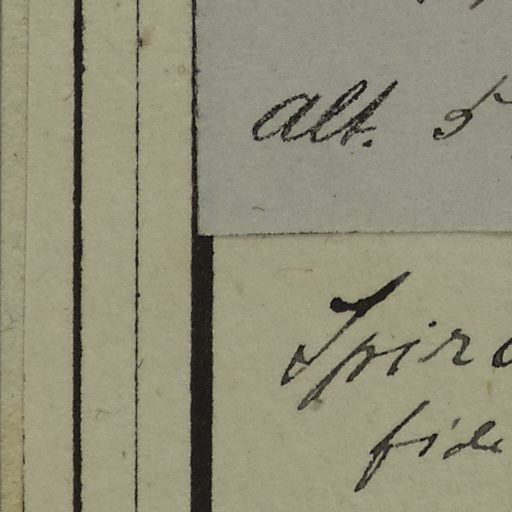 alt. 5
Spira
fide